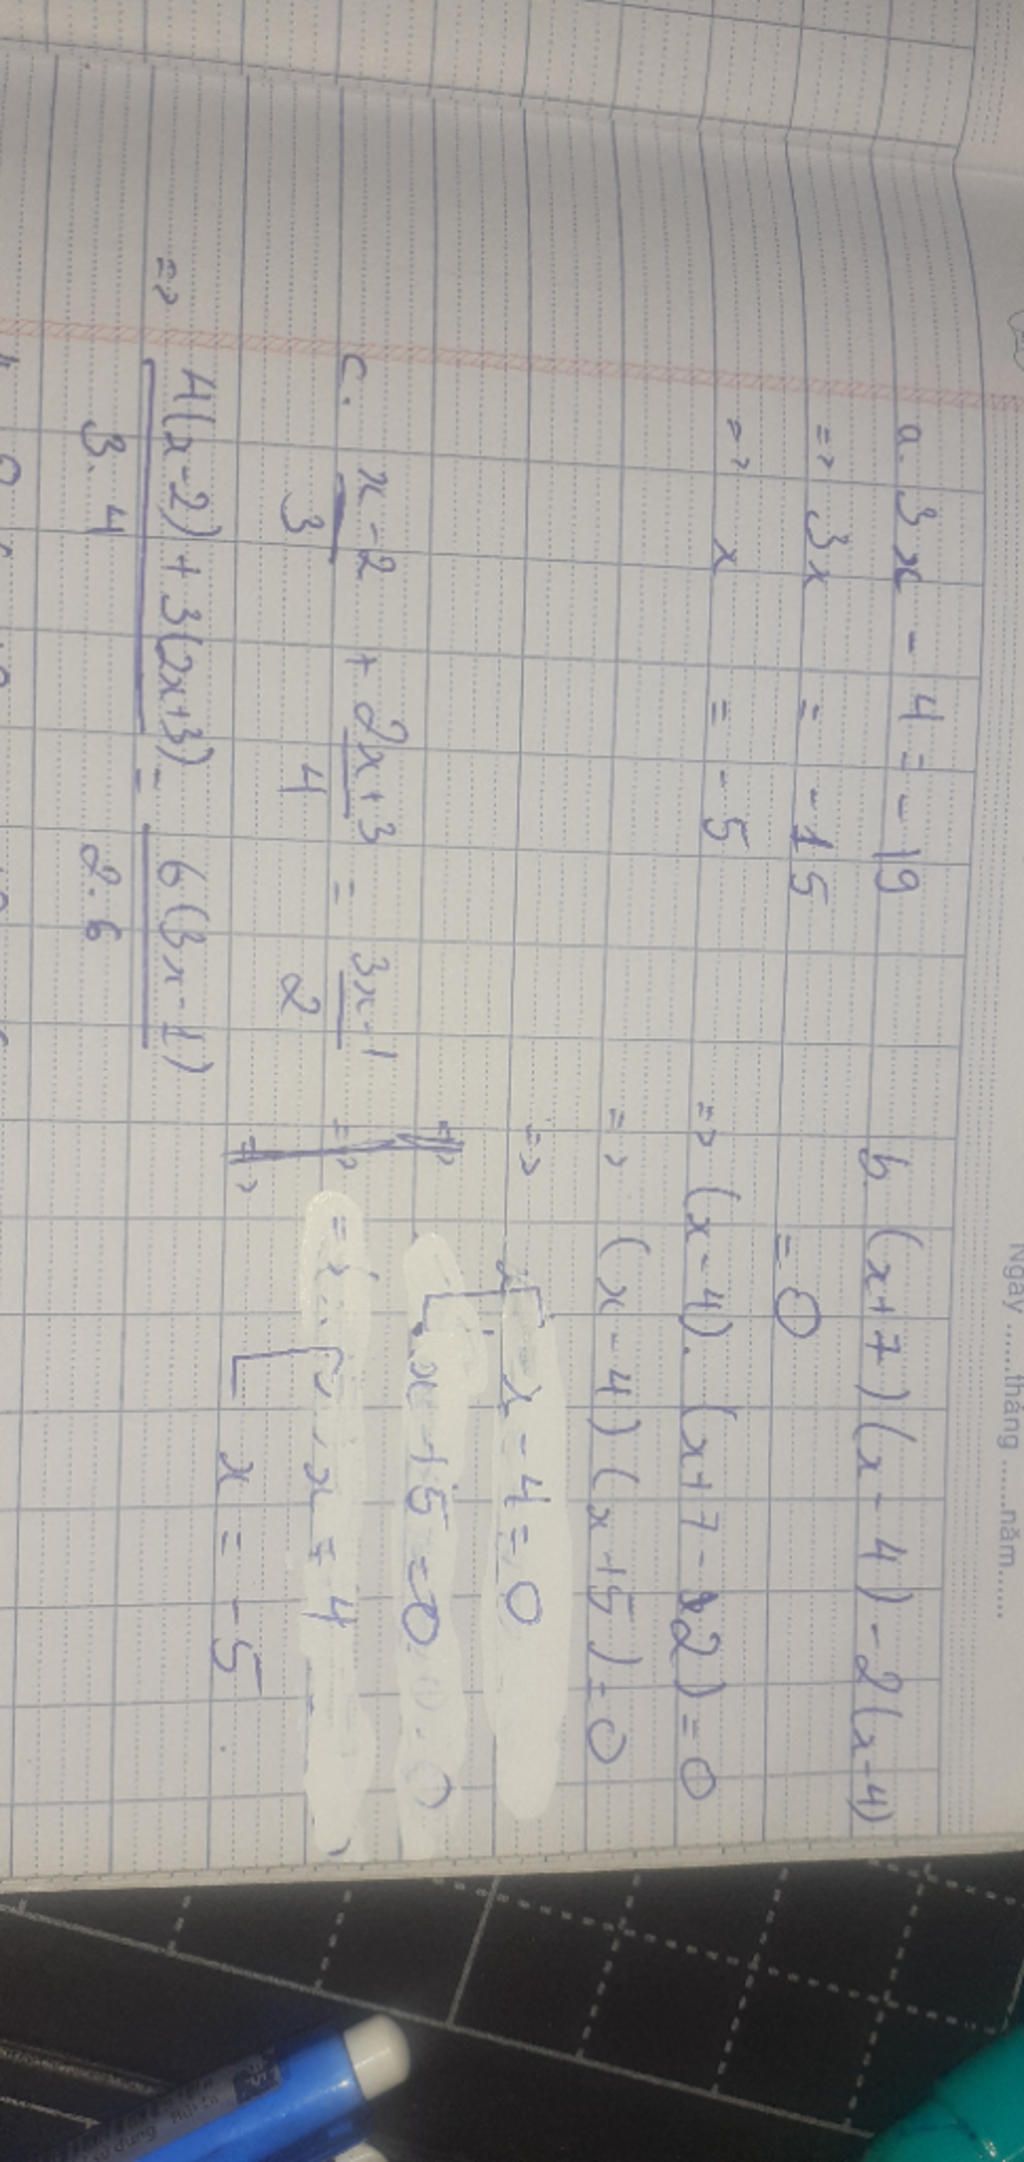 Ngày ......tháng ......năm......
a. 3x - 4 = -19
=> 3x = -15
=> x = -5
b. (x+7)(x-4) - 2(x-4)
= 0
=> (x-4). (x+7-2) = 0
=> (x-4)(x+5) = 0
=> x-4=0
x+5=0
=> x = 4
x = -5
c. x-2/3 + 2x+3/4 = 3x-1/2
=> 4(x-2)+3(2x+3)/3.4 = 6(3x-1)/2.6